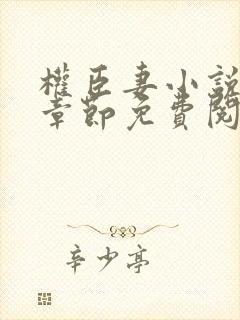 權臣妻小說
章節免費閱
辛少亭